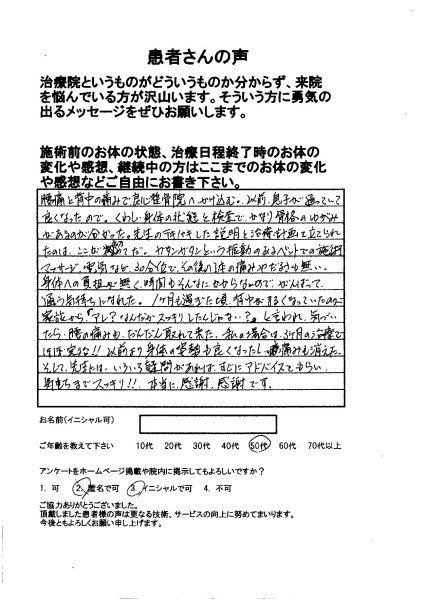 患者さんの声
治療院というものがどういうものか分からず、来院
を悩んでいる方が沢山います。そういう方に勇気の
出るメッセージをぜひお願いします。
施術前のお体の状態、治療日程終了時のお体の
変化や感想、継続中の方はここまでのお体の変化
や感想などご自由にお書き下さい。
腰痛と背中の痛みで良心整骨院へかけ込む。以前、息子が通っていて
良くなったので。くわしい身体の状態と検査で、かなり骨格のゆがみ
があるのが分かった。先生のテキパキした説明と治療計画を立てられ
たのは、ここが初めてだ。ガタンガタンという振動のあるベットでの施術
マッサージ、電気など、30分位で、その後の体の痛みやだるみも無い。
身体への負担が無く、時間もそんなにかからないので、がんばって
通う気持ちになれた。1ヶ月も過ぎた頃、背中がまるくなっていたのが
家族から「アレ?なんだかスッキリしたんじゃない?」と言われ、気づい
たら、腰の痛みも、だんだん取れて来た。私の場合は、3ヶ月の治療で
ほぼ完了!!以前より身体の姿勢も良くなったし、腰痛みも消えた。
そして、先生には、いろいろ疑問があれば、すぐにアドバイスをもらい、
気持ちまでスッキリ!!本当に感謝、感謝です。
お名前(イニシャル可)
ご年齢を教えて下さい 10代 20代 30代 40代 50代 60代 70代以上
アンケートをホームページ掲載や院内に掲示してもよろしいですか?
1. 可 2. 匿名で可 3. イニシャルで可 4. 不可
ご協力ありがとうございました。
頂戴しました患者様の声は更なる技術、サービスの向上に努めてまいります。
今後ともよろしくお願い申し上げます。